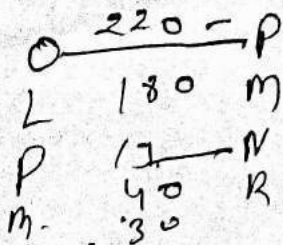 O 220 - P
L 180 M
P 17 - N
40 R
M. 30